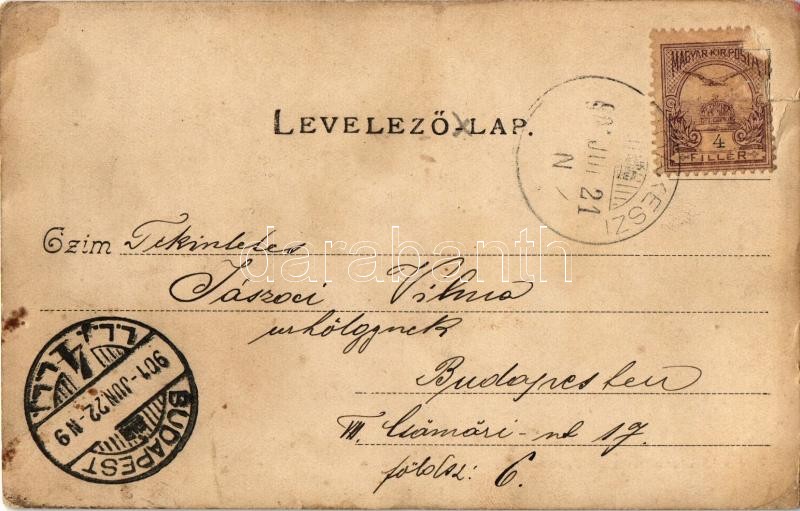 MAGYAR KIR. POSTA
4
FILLÉR
LEVELEZŐ-LAP.
JUN 21
N
KESZI
Czim Tekintetes
Jászoci Vilma
urhölgynek
Budapesten
VII. Csömöri-ut 17.
földsz: 6.
darabanth
L.L.J.
4
L.L.J.
901-JUN.22-N9
BUDAPEST